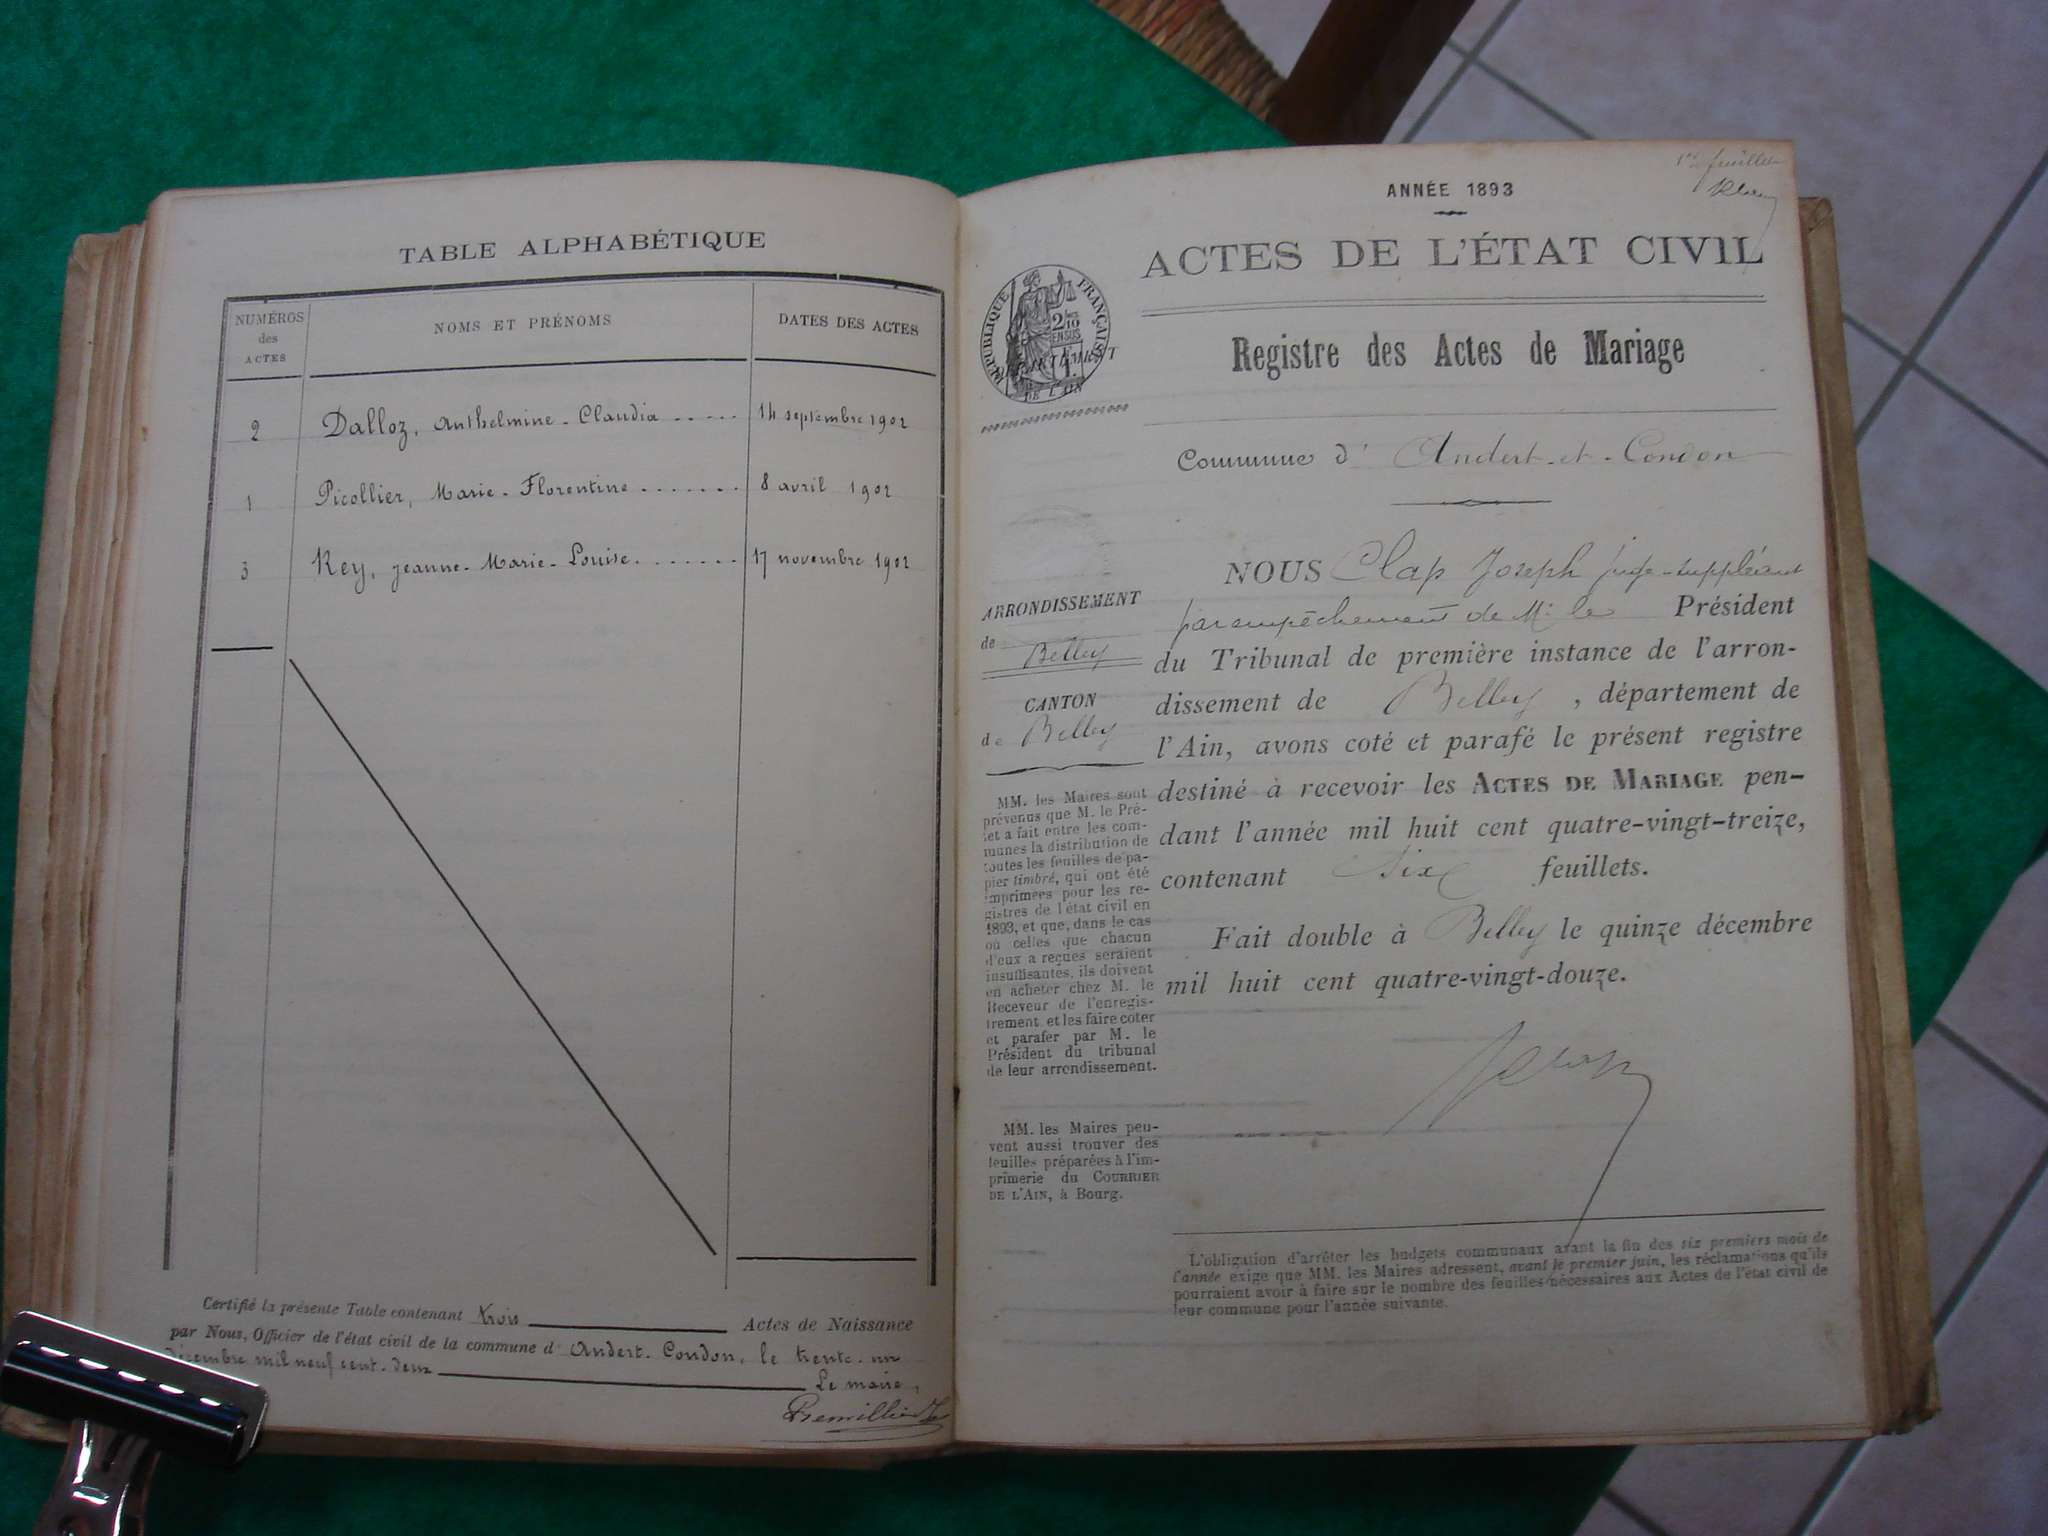 TABLE ALPHABÉTIQUE
NUMÉROS
des
ACTES
NOMS ET PRÉNOMS
DATES DES ACTES
2 Dalloz, Anthelmine-Claudia ..... 14 septembre 1902
1 Picollier, Marie-Florentine ....... 8 avril 1902
3 Rey, Jeanne-Marie-Louise ....... 17 novembre 1902
Certifié la présente Table contenant trois Actes de Naissance
par Nous, Officier de l'état civil de la commune d' Andert-Condon, le trente-un
décembre mil neuf cent-deux
Le maire,
1er feuillet
ANNÉE 1893
ACTES DE L'ÉTAT CIVIL
RÉPUBLIQUE FRANÇAISE
Registre des Actes de Mariage
Commune d' Andert-et-Condon
ARRONDISSEMENT
de Belley
CANTON
de Belley
MM. les Maires sont
prévenus que M. le Pré-
fet a fait entre les com-
munes la distribution de
toutes les feuilles de pa-
pier timbré, qui ont été
imprimées pour les re-
gistres de l'état civil en
1893, et que, dans le cas
où celles que chacun
d'eux a reçues seraient
insuffisantes, ils doivent
en acheter chez M. le
Receveur de l'enregis-
trement et les faire coter
et parafer par M. le
Président du tribunal
de leur arrondissement.
MM. les Maires peu-
vent aussi trouver des
feuilles préparées à l'im-
primerie du COURRIER
DE L'AIN, à Bourg.
NOUS Clap Joseph juge-suppléant
par empêchement de Mr le Président
du Tribunal de première instance de l'arron-
dissement de Belley, département de
l'Ain, avons coté et parafé le présent registre
destiné à recevoir les ACTES DE MARIAGE pen-
dant l'année mil huit cent quatre-vingt-treize,
contenant Six feuillets.
Fait double à Belley le quinze décembre
mil huit cent quatre-vingt-douze.
L'obligation d'arrêter les budgets communaux avant la fin des six premiers mois de
l'année exige que MM. les Maires adressent, avant le premier juin, les réclamations qu'ils
pourraient avoir à faire sur le nombre des feuilles nécessaires aux Actes de l'état civil de
leur commune pour l'année suivante.